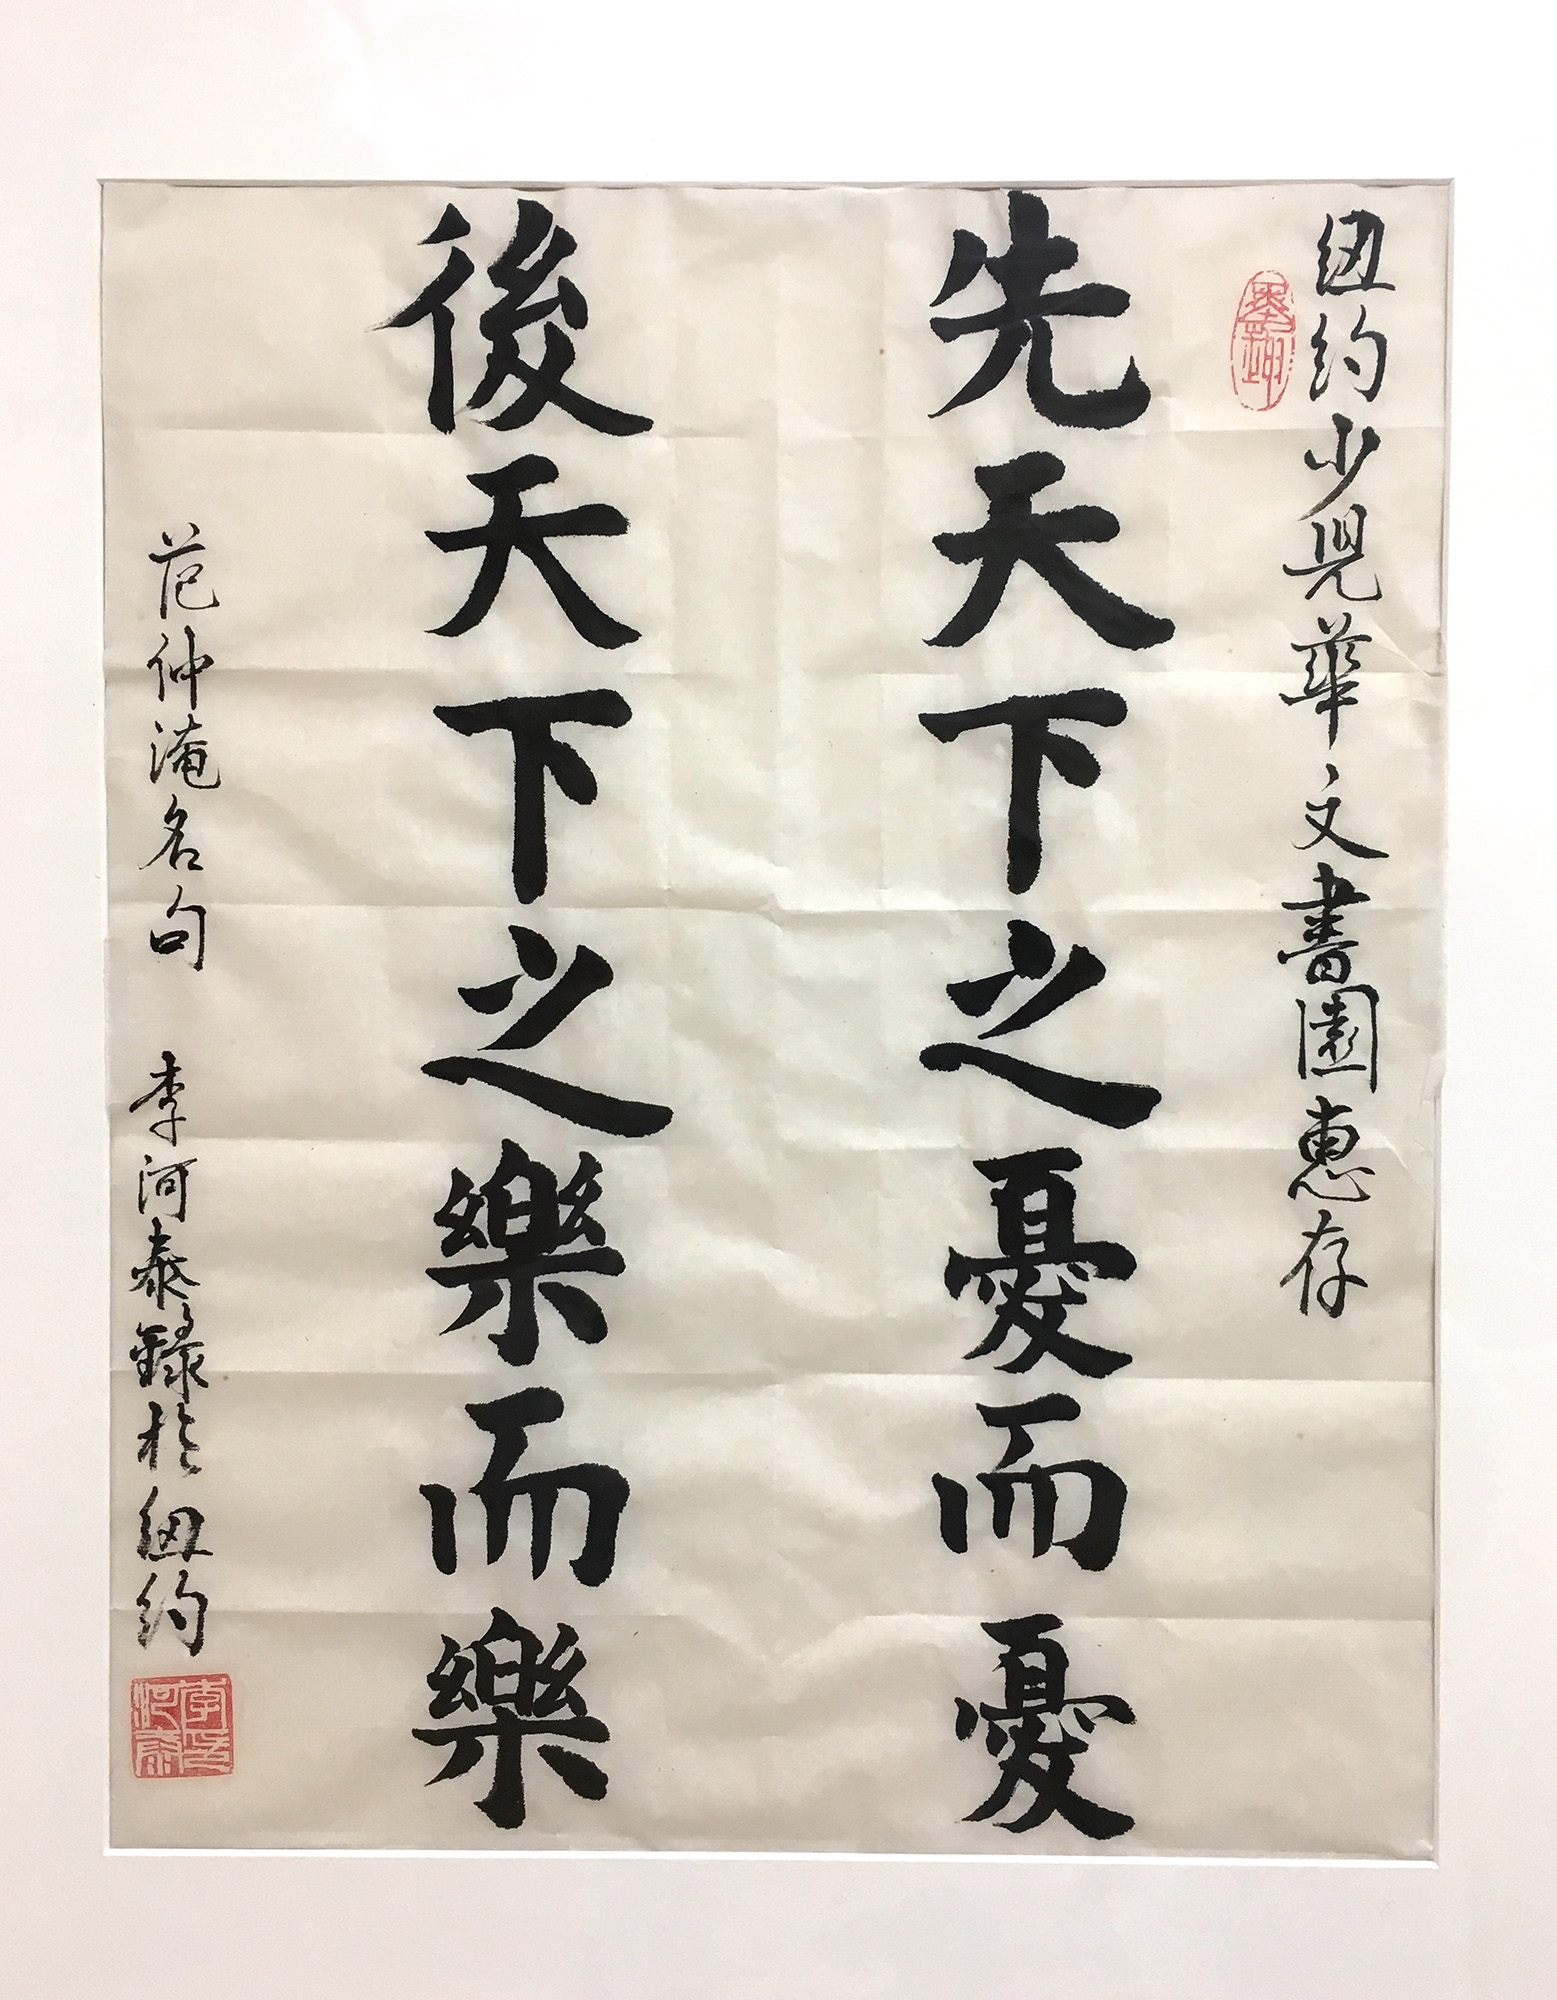 紐約少兒華文書園惠存
先天下之憂而憂
後天下之樂而樂
范仲淹名句 李河泰錄於紐約